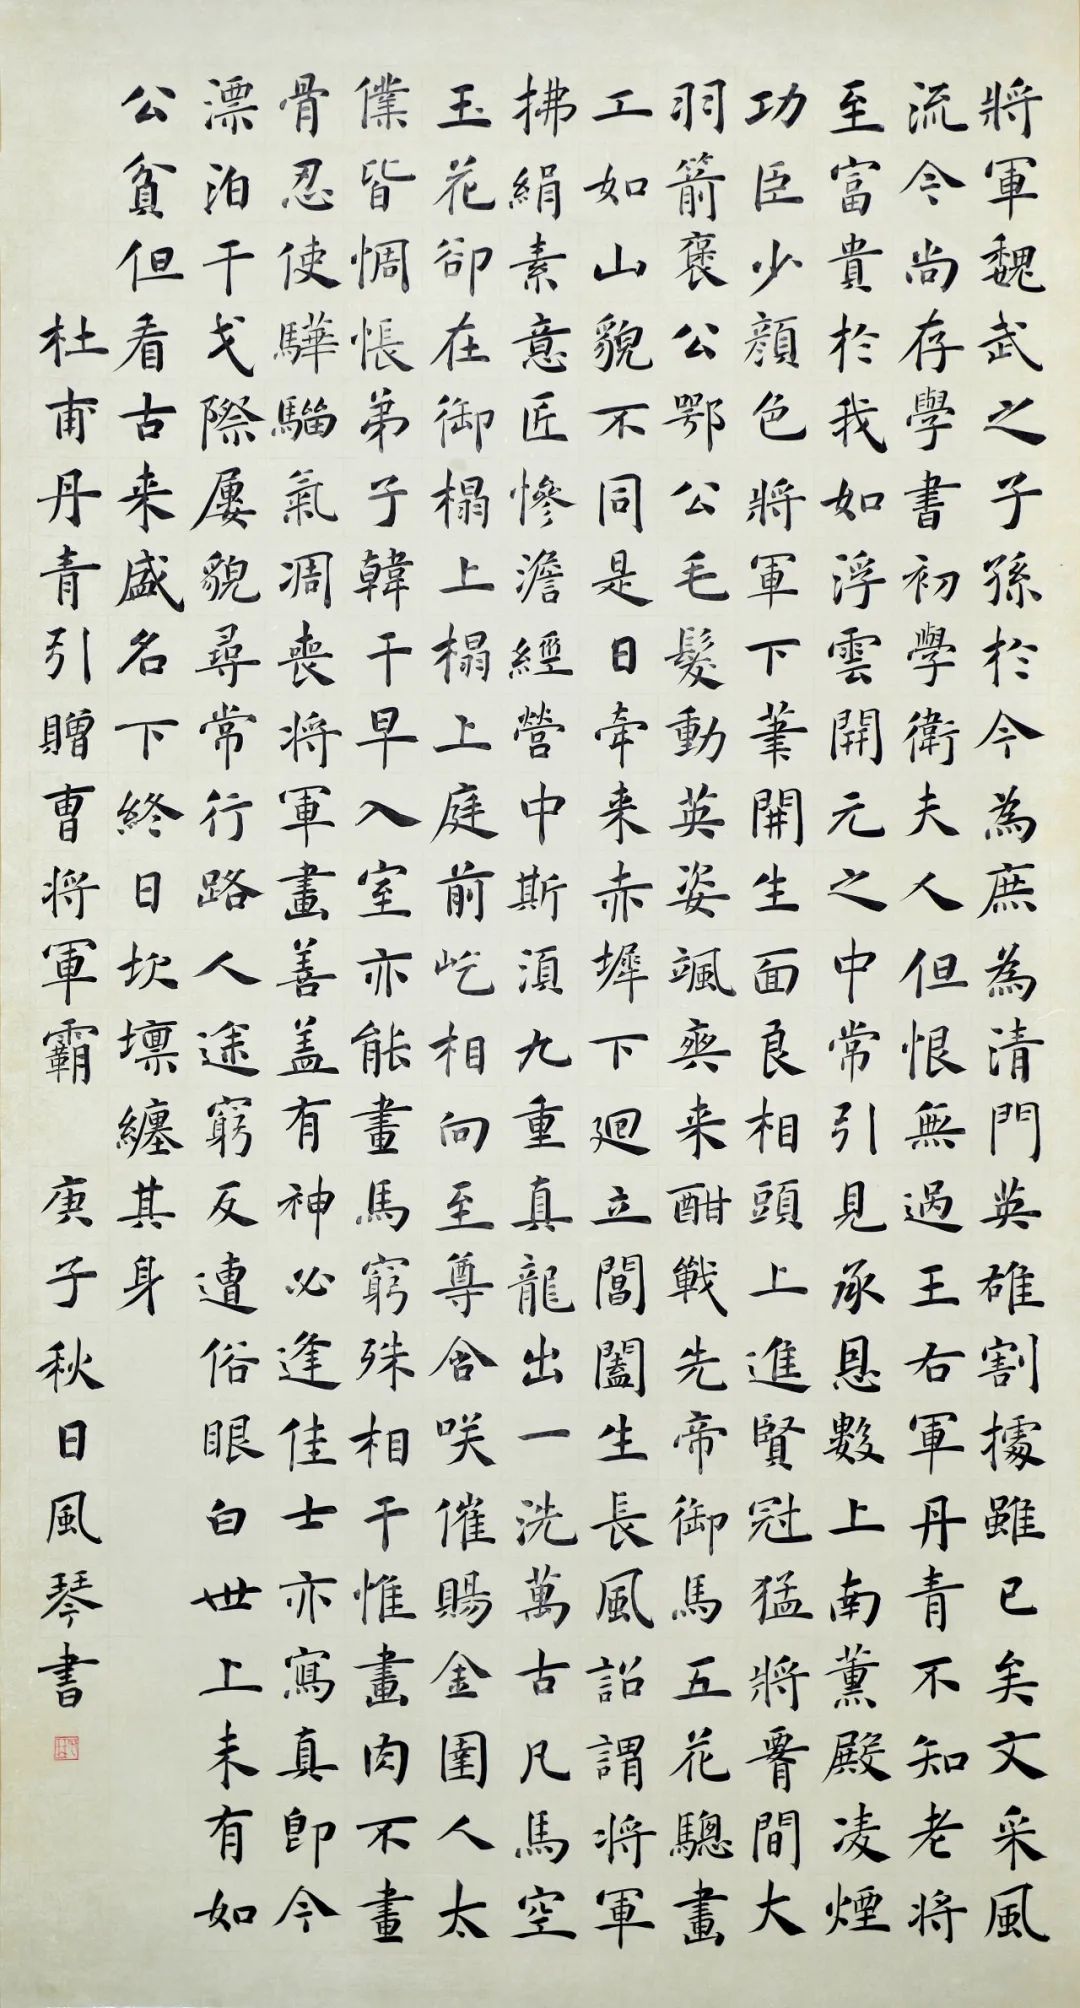 將軍魏武之子孫於今為庶為清門英雄割據雖已矣文采風
流今尚存學書初學衛夫人但恨無過王右軍丹青不知老將
至富貴於我如浮雲開元之中常引見承恩數上南薰殿凌煙
功臣少顏色將軍下筆開生面良相頭上進賢冠猛將腰間大
羽箭褒公鄂公毛髮動英姿颯爽来酣戰先帝御馬五花驄畫
工如山貌不同是日牽来赤墀下迴立閶闔生長風詔謂将軍
拂絹素意匠慘澹經營中斯須九重真龍出一洗萬古凡馬空
玉花卻在御榻上榻上庭前屹相向至尊含咲催賜金圉人太
僕皆惆悵弟子韓干早入室亦能畫馬窮殊相干惟畫肉不畫
骨忍使驊騮氣凋喪将軍畫善盖有神必逢佳士亦寫真即今
漂泊干戈際屢貌尋常行路人途窮反遭俗眼白世上未有如
公貧但看古来盛名下終日坎壈纏其身
杜甫丹青引贈曹将軍霸 庚子秋日風琴書